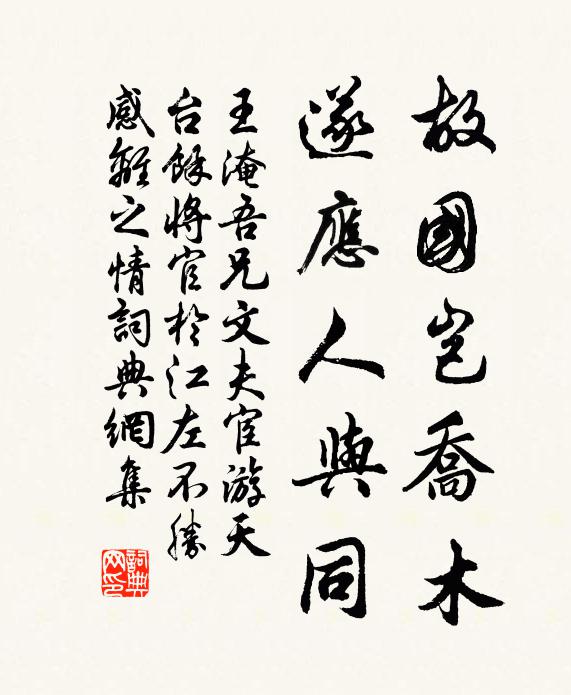 故國豈喬木
遂應人與同
王淹吾兄文夫宦游天
台餘將官於江左不勝
感離之情詞典網集
詞典網印